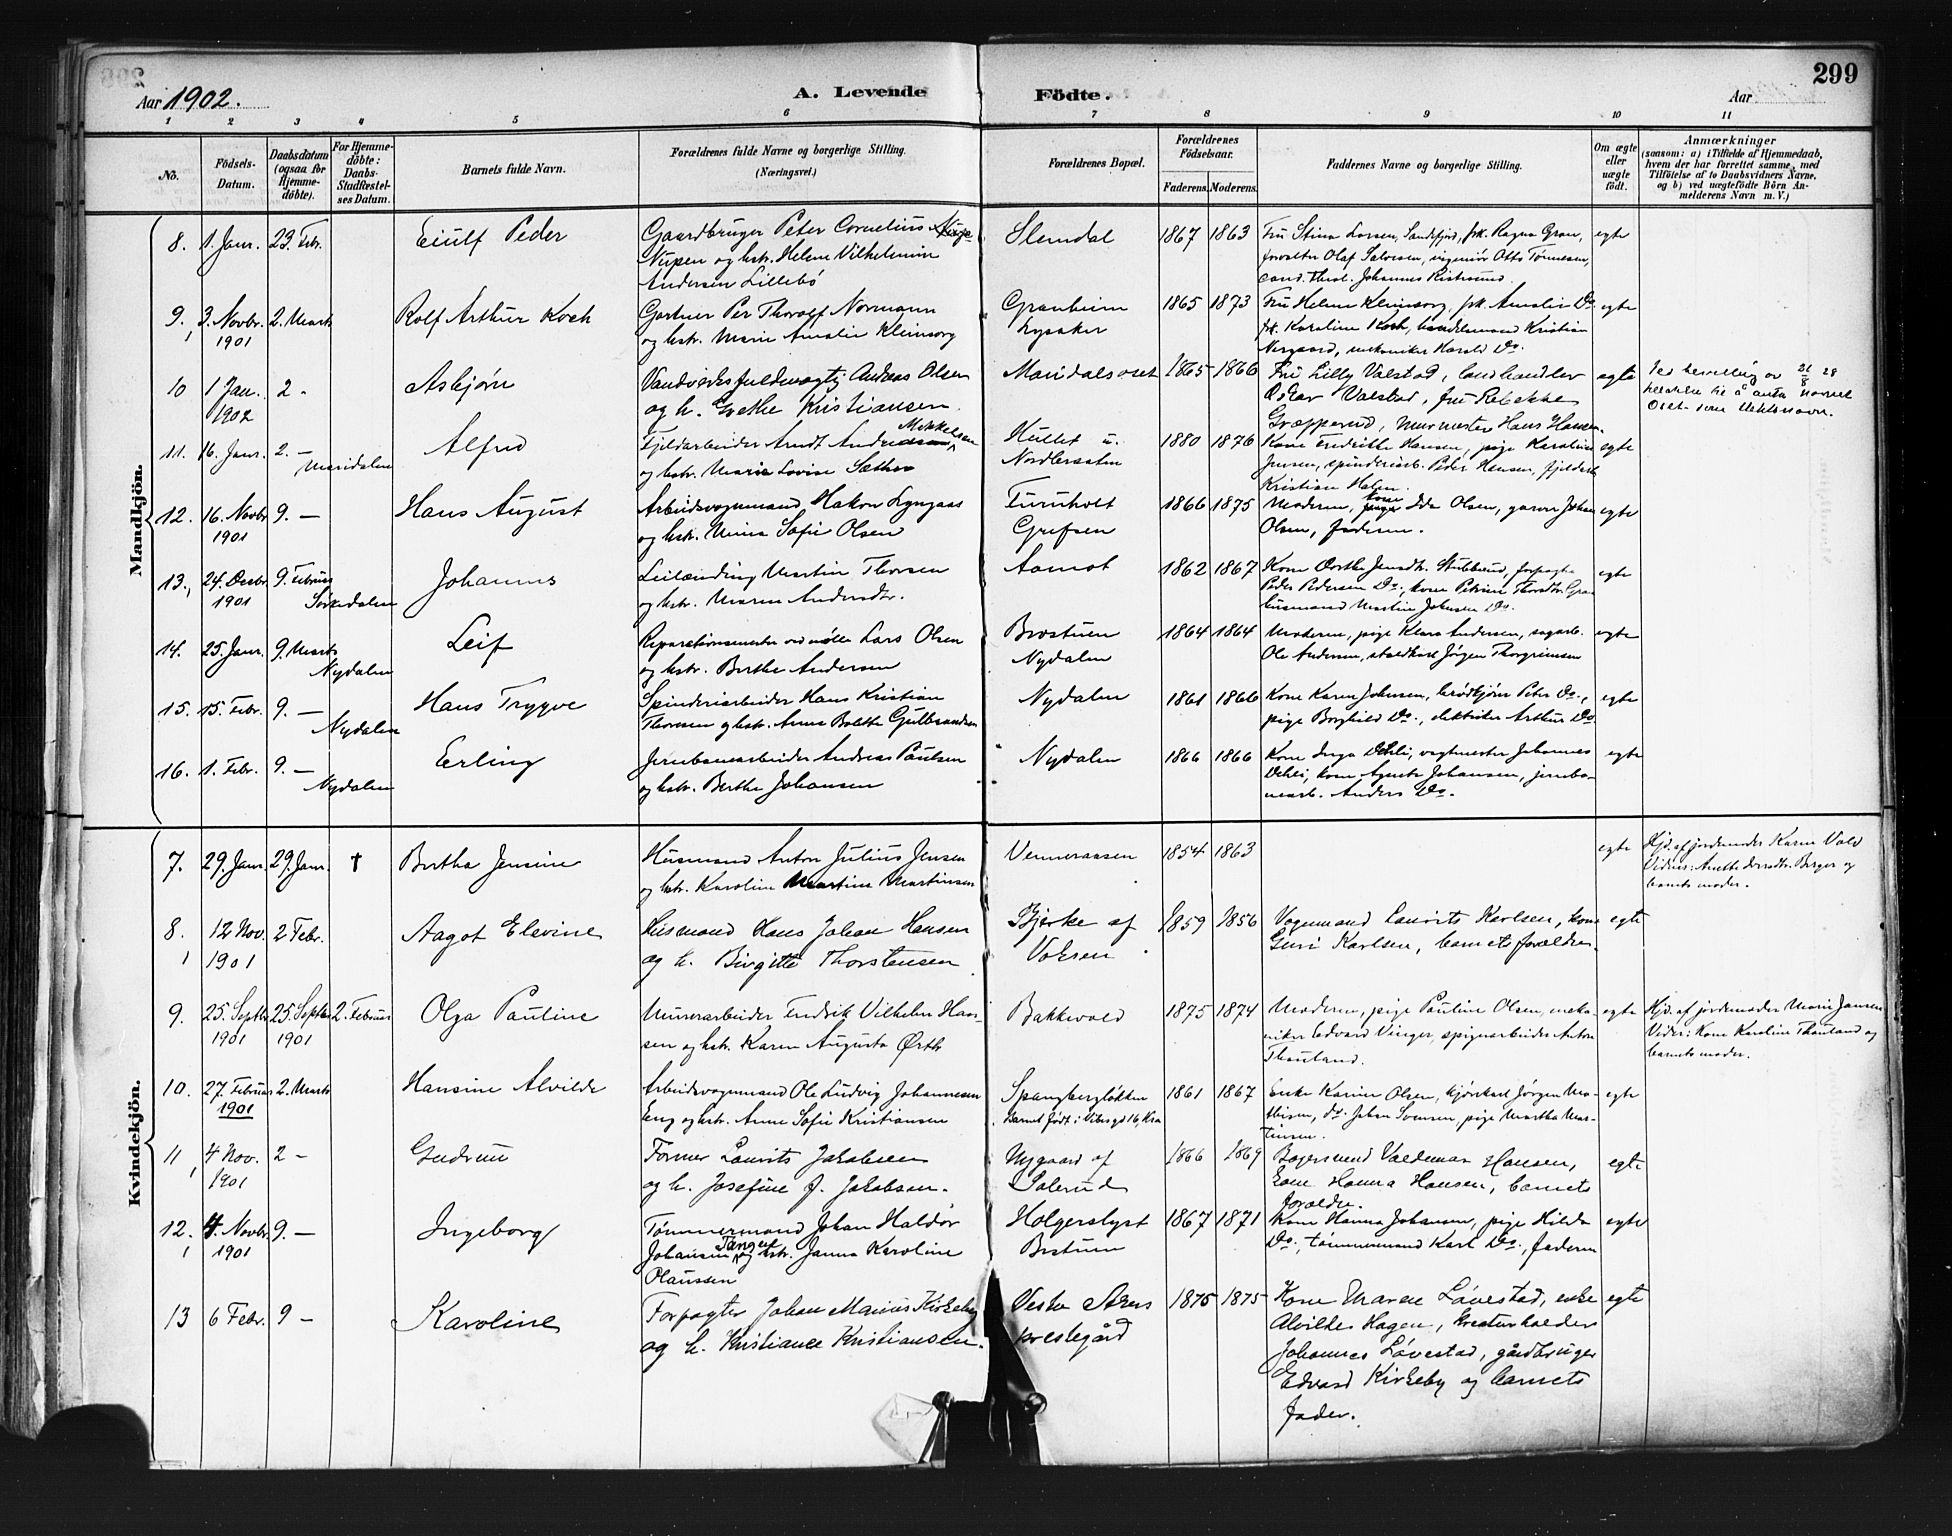 299
Aar 1902.
A. Levende Födte.
Aar
1 2 3 4 5 6 7 8 9 10 11
No.
Födsels-Datum.
Daabsdatum (ogsaa for Hjemme-döbte).
For Hjemme-döbte: Daabs-Stadfæstel-ses Datum.
Barnets fulde Navn.
Forældrenes fulde Navne og borgerlige Stilling. (Næringsvei.)
Forældrenes Bopæl.
Forældrenes Födselsaar.
Faderens. Moderens.
Faddernes Navne og borgerlige Stilling.
Om ægte eller uægte födt.
Anmærkninger
(saasom: a) i Tilfælde af Hjemmedaab, hvem der har forrettet samme, med Tilföielse af to Daabsvidners Navne, og b) ved uægtefödte Börn An-melderens Navn m. V.)
Mandkjön.
8. 1. Janr. 23. Febr. Eiulf Peder
Gaardbruger Peter Cornelius
Nupen og hstr. Helene Vilhelmine
Andersen Lillebö
Slemdal 1867 1863
Fru Stina Larsen, Sandefjord, frk. Ragna Gran,
forvalter Olaf Salvesen, ingeniör Otto Tönnesen,
cand. theol. Johannes
egte
9. 3. Novbr. 1901 2. Marts Rolf Arthur Koch
Gartner Per Thorolf Normann
og hstr. Marie Amalie Kleinsorg
Granheim
Lysaker 1865 1873
Fru Helene Kleinsorg, frk. Amalie Do
fr. Karoline Koch, handelsmand Kristian
Nergaard, mekaniker Harald Do.
egte
10 1 Jan. 1902 2 - Asbjørn
Vandværksfuldmægtig Andreas Olsen
og h. Grethe Kristiansen.
Maridalsoset 1865 1866
Fru Lilly Valstad, landhandler
Oskar Valstad, fru Rebekka
Græpperud, murmester Hans Hansen.
egte
Ved bevilling av 21/8 28
til å anta navnet
Oset som slektsnavn.
11. 16. Janr. 2. - Maridalen Alfred
Fjeldarbeider Arndt Andreassen Mikkelsen
og hstr. Marie Lovise Sæther
Hullet u.
Nordbersæten 1880 1876
Kone Fredrikke Hansen, pige Karoline
Jensen, spinderiarb. Peder Hansen, fjeldarb.
Kristian Halen.
egte
12. 16. Novbr 1901 9. - Hans August
Arbeidsvognmand Hakon Lyngaas
og hstr. Mina Sofie Olsen
Furuholt
Grefsen 1866 1875
Moderen, kone Ida Olsen, garver Johan
Olsen, faderen.
egte
13. 24. Decbr. 1901 9. Februar Sörkedalen Johannes
Leilænding Martin Thorsen
og hstr. Maren Andersdtr.
Aamot 1862 1867
Kone Dorthe Jensdtr. Stubberud, forpagter
Peder Pedersen Do., kone Petrine Thorsdtr. Gran
husmand Martin Johnsen Do.
egte
14. 25. Janr. 9. Marts Nydalen Leif
Reparationsmester ved mölle Lars Olsen
og hstr. Berthe Andersen
Brostuen
Nydalen 1864 1864
Moderen, pige Klara Andersen, sagarb.
Ole Andersen, staldkarl Jörgen Thorgrimsen
egte
15. 15. Febr. 9. - Nydalen Hans Trygve
Spinderiarbeider Hans Kristian
Thoresen og hstr. Anna Bolette Gulbrandsen
Nydalen 1861 1866
Kone Karen Johnsen, brödkjörer Peter Do.,
pige Borghild Do., elektriker Arthur Do
egte
16. 1. Febr. 9. - Nydalen Erling
Jernbanearbeider Andreas Paulsen
og hstr. Berthe Johansen
Nydalen 1866 1866
Kone Inga Dehli, vagtmester Johannes
Dehli, kone Agnete Johansen, jernba-
nearb. Anders Do.
egte
Kvindekjön.
7. 29. Janr. 29. Janr. † Bertha Jensine
Husmand Anton Julius Jensen
og hstr. Karoline Martine Martinsen
Venneraasen 1854 1863
egte
Hjd. af jordemoder Karen Vold
Vidner: Anette Berger og
barnets moder.
8. 12 Nov. 1901 2 Febr. Aagot Elevine
Husmand Hans Johan Hansen
og h. Birgitte Thorstensen
Bjerke af
Voksen 1859 1856
Vognmand Laurits Karlsen, kone
Guri Karlsen, barnets forældre.
egte
9. 25. Septbr 1901 25. Septbr 1901 2. Februar Olga Pauline
Murerarbeider Fredrik Vilhelm Han-
sen og hstr. Karen Augusta Örth
Bakkevold 1875 1874
Moderen, pige Pauline Olsen, meka-
niker Edvard Vinger, spigerarbeider Anton
Thauland.
egte
Hjd. af jordemoder Marie Jansen
Vidner: Kone Karoline Thauland og
barnets moder.
10. 27. Februar 1901 2. Marts Hansine Alvilde
Arbeidsvognmand Ole Ludvig Johannesen
Eng og hstr. Anne Sofie Kristiansen
Spangbergløkken
Barnet født i Vibesgd 16, Kra 1861 1867
Enke Karine Olsen, kjörekarl Jörgen Ma-
thisen, do. Johan Svensen, pige Martha Mar-
tinsen.
egte
11 4 Nov. 1901 2 - Gudrun
Former Laurits Jakobsen
og h. Josefine J. Jakobsen.
Nygaard af
Solerud 1866 1869
Bagersvend Valdemar Hansen,
Kone Hanna Hansen, barnets
forældre.
egte
12. 4. Novbr. 1901 9. - Ingeborg
Tömmermand Johan Haldor
Johansen Tangen og hstr. Janna Karoline
Olaussen
Holgerslyst
Brstuen 1867 1871
Kone Hanna Johansen, pige Hilda
Do., tömmermand Karl Do., faderen
egte
13 6 Febr. 9 - Karoline
Forpagter Johan Marius Kirkeby
og h. Kristiance Kristiansen.
Vestre Akers
prestegård 1875 1875
Kone Maren Løvestad, enke
Alvilde Hagen, kreaturholder
Johannes Løvestad, gårdbruger
Edvard Kirkeby og barnets
fader.
egte